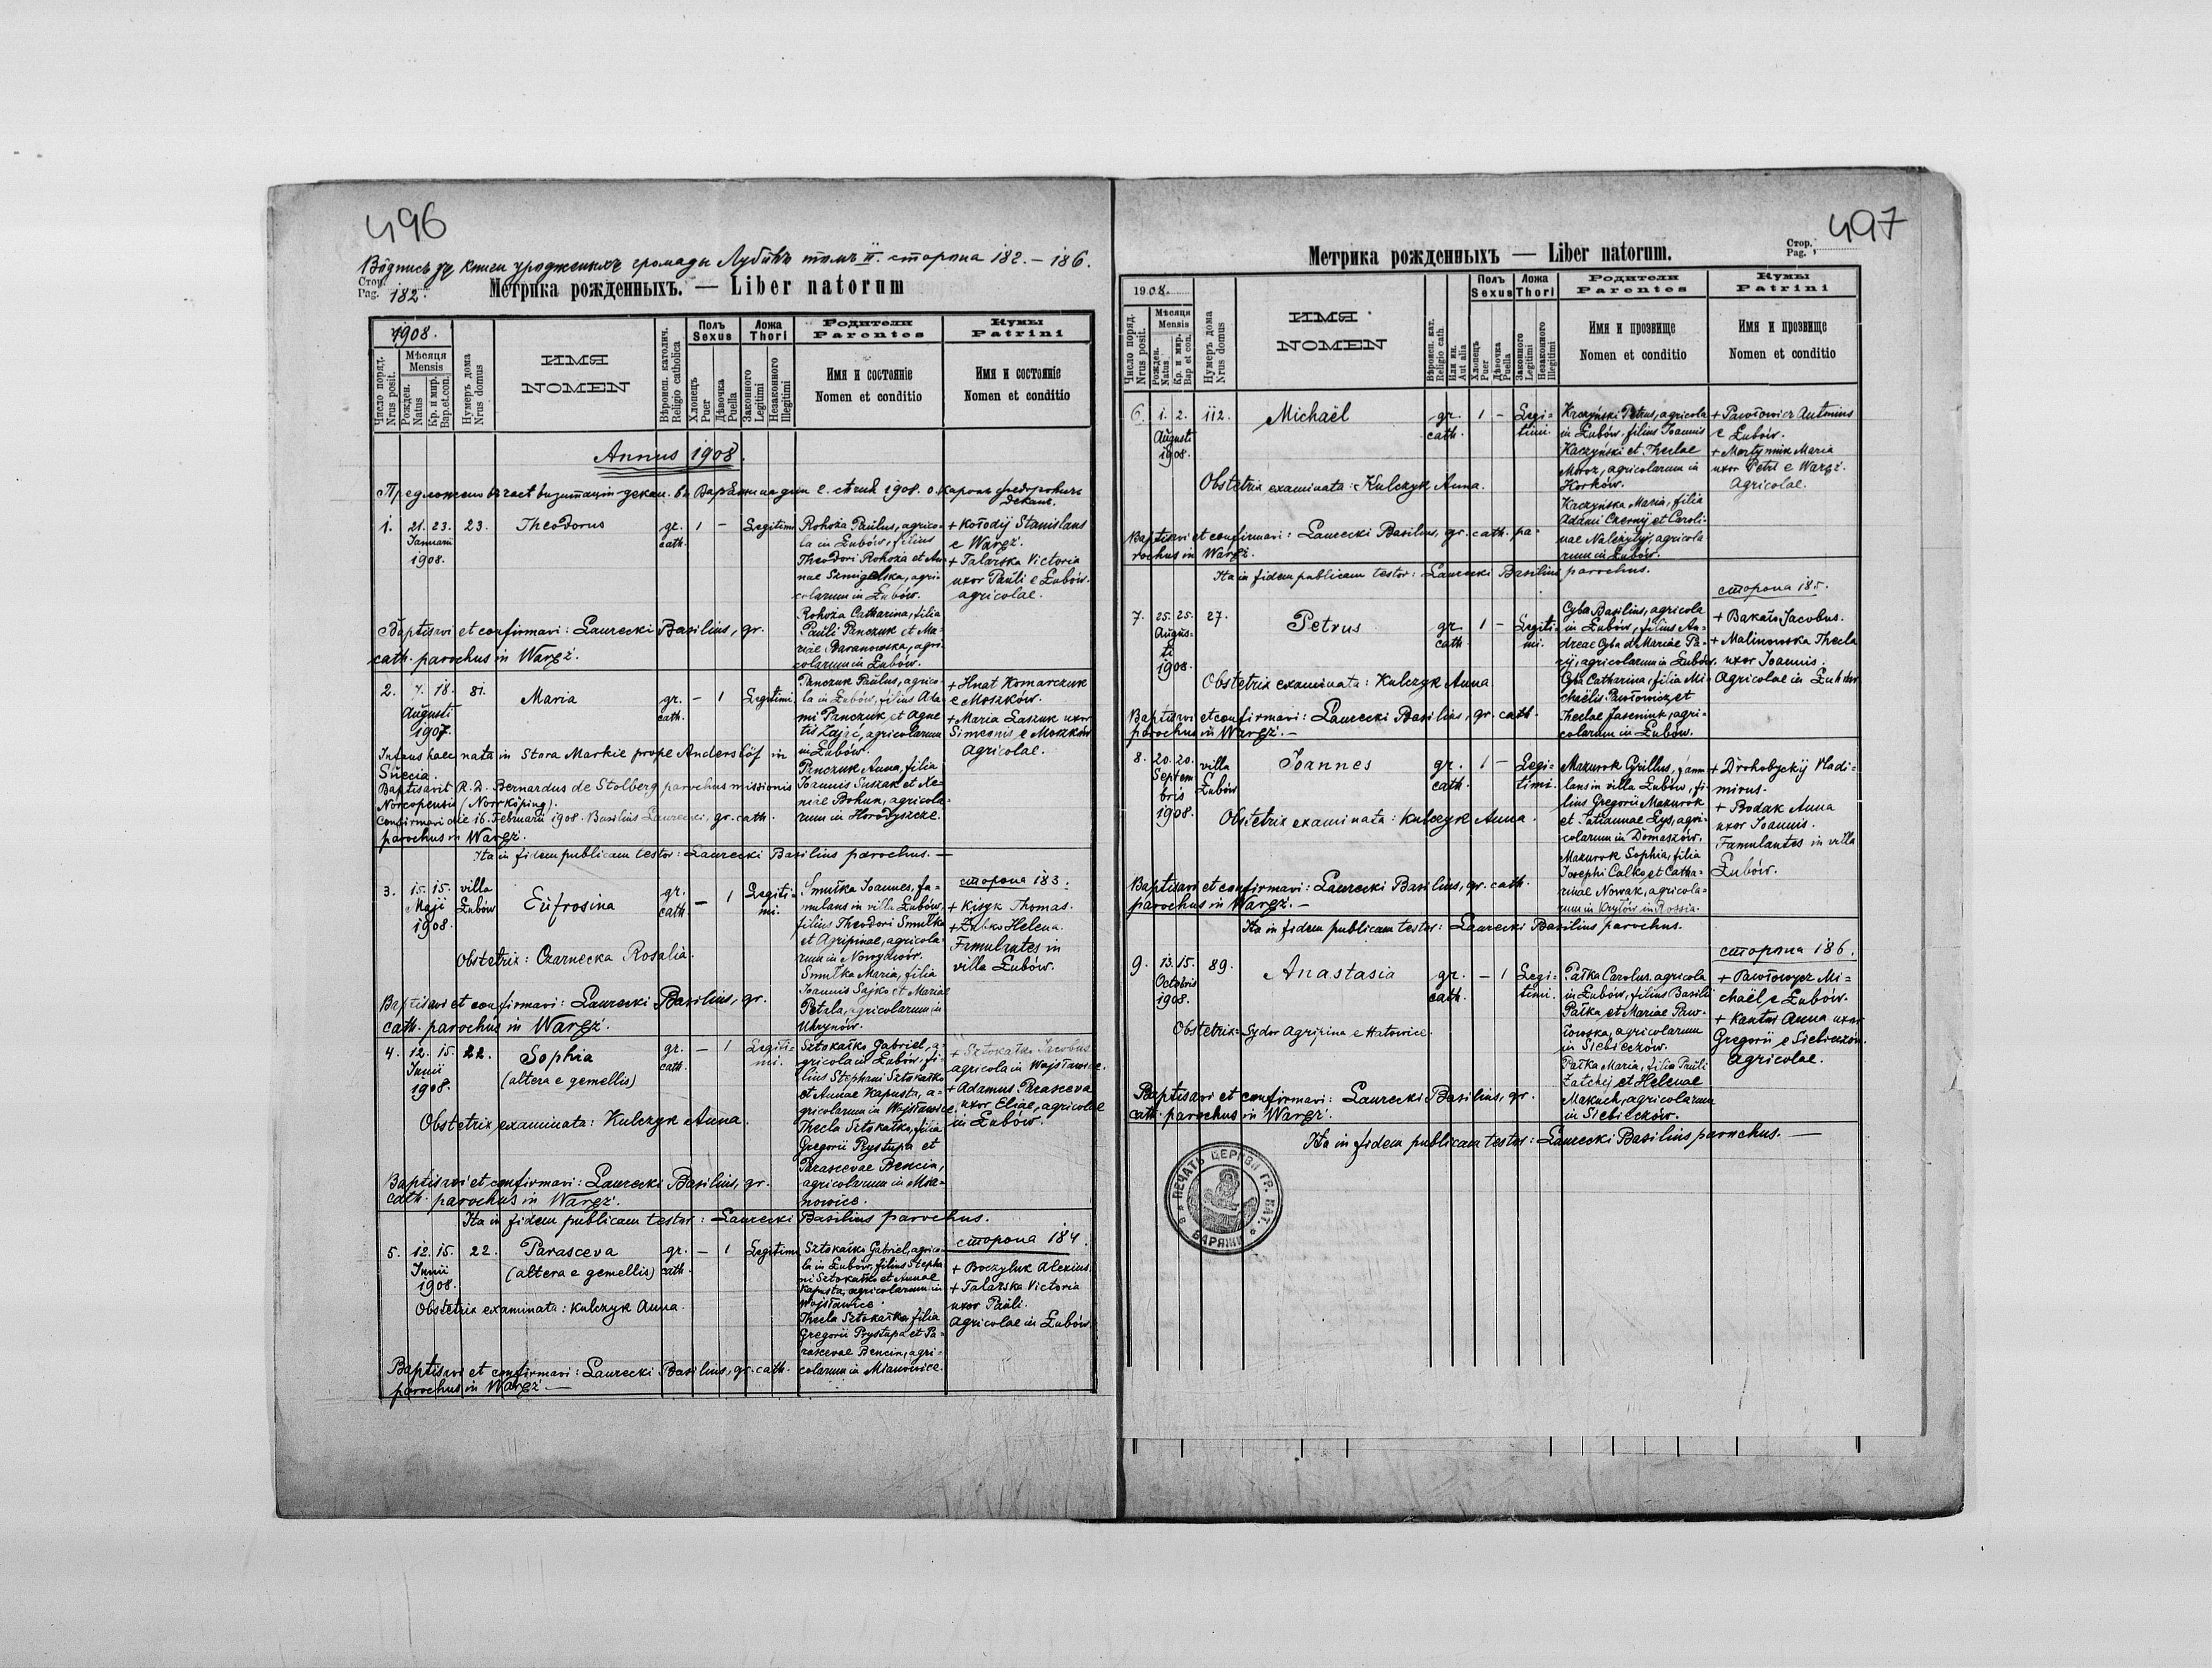 496
Вôдпись зъ книги урожденныхъ громады Лубôвъ томъ II. сторона 182. – 186.
Стор.
Pag. 182.
Метрика рожденныхъ. — Liber natorum
1908.
Число поряд.
Nrus posit.
Мѣсяця
Mensis
Рожден.
Natus
Кр. и мир.
Bap. et con.
Нумеръ дома
Nrus domus
ИМЯ
NOMEN
Вѣроисп. католич.
Religio catholica
Полъ
Sexus
Хлопецъ
Puer
Дѣвочка
Puella
Ложа
Thori
Законного
Legitimi
Незаконного
Illegitimi
Родители
Parentes
Имя и состоянie
Nomen et conditio
Кумы
Patrini
Имя и состоянie
Nomen et conditio
Annus 1908.
Предложено въ часѣ визитаціи декан. въ Варяжи на дни 2. сѣчня 1908. о. Кароль Федоровичъ
Декане.
1.
21. 23.
Januarii
1908.
23.
Theodorus
gr.
cath.
1
–
Legitimi
Rohoża Paulus, agrico-
la in Łubów, filius
Theodori Rohoża et An-
nae Szmigelska, agri-
colarum in Łubów.
Rohoża Catharina, filia
Pauli Panczuk et Ma-
riae Baranowska, agri-
colarum in Łubów.
+ Kołodij Stanislaus
e Waręż.
+ Talarska Victoria
uxor Pauli e Łubów.
agricolae.
Baptisavi et confirmavi: Laurecki Basilius, gr.
cath. parochus in Waręż.
2.
7. 18.
Augusti
1907.
81.
Maria
gr.
cath.
–
1
Legitimi
Panczuk Paulus, agrico-
la in Łubów, filius Ada-
mi Panczuk et Agne-
tis Zając, agricolarum
in Łubów.
Panczuk Anna, filia
Joannis Suszak et Xe-
niae Bohun, agricola-
rum in Horodyszcze.
+ Hnat Komarczuk
e Moszków.
+ Maria Laszuk uxor
Simeonis e Moszków
agricolae.
Infans haec nata in Stora Markie prope Anderslöf in
Suecia.
Baptisavit R. D. Bernardus de Stolberg parochus missionis
Norcopensis (Norrköping).
Confirmavi die 16. Februarii 1908. Basilius Laurecki, gr. cath.
parochus in Waręż.
Ita in fidem publicam testor: Laurecki Basilius parochus. —
3.
15. 15.
Maji
1908.
villa
Łubów
Eufrosina
gr.
cath.
–
1
Legiti-
mi.
Smułka Joannes, fa-
mulans in villa Łubów,
filius Theodori Smułka
et Agripinae, agricola-
rum in Nowydwór.
Smułka Maria, filia
Joannis Sajko et Mariae
Petzla, agricolarum in
Uhrynów.
сторона 183.
+ Kisyk Thomas.
+ Zubko Helena.
Famulantes in
villa Łubów.
Obstetrix: Czarnecka Rosalia.
Baptisavi et confirmavi: Laurecki Basilius, gr.
cath. parochus in Waręż.
4.
12. 15.
Junii
1908.
22.
Sophia
(altera e gemellis)
gr.
cath.
–
1
Legiti-
mi.
Sztokałko Gabriel, a-
gricola in Łubów, fi-
lius Stephani Sztokałko
et Annae Kapusta, a-
gricolarum in Wojsławice.
Thecla Sztokałka, filia
Gregorii Prystupa et
Parascevae Bencin,
agricolarum in Mia-
nowice.
+ Sztokałko Jacobus
agricola in Wojsławice.
+ Adamus Parasceva
uxor Eliae, agricolae
in Łubów.
Obstetrix examinata: Kulczyk Anna.
Baptisavi et confirmavi: Laurecki Basilius, gr.
cath. parochus in Waręż.
Ita in fidem publicam testor: Laurecki Basilius parochus.
5.
12. 15.
Junii
1908.
22.
Parasceva
(altera e gemellis)
gr.
cath.
–
1
Legitimi
Sztokałko Gabriel, agrico-
la in Łubów, filius Stepha-
ni Sztokałko et Annae
Kapusta, agricolarum in
Wojsławice.
Thecla Sztokałka, filia
Gregorii Prystupa et Pa-
rascevae Bencin, agri-
colarum in Mianowice.
сторона 184.
+ Boczyluk Alexius.
+ Talarska Victoria
uxor Pauli.
Agricolae in Łubów.
Obstetrix examinata: Kulczyk Anna.
Baptisavi et confirmavi: Laurecki Basilius, gr. cath.
parochus in Waręż —
497
Метрика рожденныхъ — Liber natorum.
Стор.
Pag.
1908.
Число поряд.
Nrus posit.
Мѣсяця
Mensis
Рожден.
Natus
Кр. и мир.
Bap et con.
Нумеръ дома
Nrus domus
ИМЯ
NOMEN
Вѣроисп. кат.
Religio cath
Или ин.
Aut alia
Полъ
Sexus
Хлопецъ
Puer
Дѣвочка
Puella
Ложа
Thori
Законного
Legitimi
Незаконного
Illegitimi
Родители
Parentes
Имя и прозвище
Nomen et conditio
Кумы
Patrini
Имя и прозвище
Nomen et conditio
6.
1. 2.
Augusti
1908.
112.
Michaël
gr.
cath.
1
–
Legi-
timi.
Kaczyński Petrus, agricola
in Łubów, filius Joannis
Kaczyński et Theclae
Moroz, agricolarum in
Korków.
Kaczyńska Maria, filia
Adami Czernij et Caroli-
nae Należytyj, agricola
rum in Łubów.
+ Pawłowicz Antonius
e Łubów.
+ Martyniuk Maria
uxor Petri e Waręż.
Agricolae.
Obstetrix examinata: Kulczyk Anna.
Baptisavi et confirmavi: Laurecki Basilius, gr. cath. pa-
rochus in Waręż.
Ita in fidem publicam testor: Laurecki Basilius parochus.
7.
25. 25.
Augus-
ti
1908.
27.
Petrus
gr.
cath.
1
–
Legiti-
mi.
Cyba Basilius, agricola
in Łubów, filius An-
dreae Cyba et Mariae Pa-
ryj, agricolarum in Łubów.
Cyba Catharina, filia Mi-
chaëlis Pawłowicz et
Theclae Jaseniuk, agri-
colarum in Łubów.
сторона 185.
+ Bakało Jacobus.
+ Malinowska Thecla
uxor Joannis.
Agricolae in Łubów
Obstetrix examinata: Kulczyk Anna.
Baptisavi et confirmavi: Laurecki Basilius, gr. cath.
parochus in Waręż. —
8.
20. 20.
Septem
bris
1908.
villa
Łubów
Joannes
gr.
cath.
1
–
Legi-
timi.
Mazurok Cyrillus, famu
lans in villa Łubów, fi-
lius Gregorii Mazurok
et Tatiannae Lys, agri-
colarum in Domaszów.
Mazurok Sophia, filia
Josephi Calko et Catha-
rinae Nowak, agricola-
rum in Kryłów in Rossia.
+ Drohobyckij Vladi-
mirus.
+ Bodak Anna
uxor Joannis.
Famulantes in villa
Łubów.
Obstetrix examinata: Kulczyk Anna.
Baptisavi et confirmavi: Laurecki Basilius, gr. cath.
parochus in Waręż. —
Ita in fidem publicam testor: Laurecki Basilius parochus.
9.
13. 15.
Octobris
1908.
89.
Anastasia
gr.
cath.
–
1
Legi-
timi.
Pałka Carolus, agricola
in Łubów, filius Basili
Pałka et Mariae Paw-
łowska, agricolarum
in Siebieczów.
Pałka Maria, filia Pauli
Zatchij et Helenae
Makuch, agricolarum
in Siebieczów.
сторона 186.
+ Pawłowycz Mi-
chaël e Łubów.
+ Kantor Anna uxor
Gregorii e Siebieczów.
Agricolae.
Obstetrix: Sydor Agripina e Hatowice.
Baptisavi et confirmavi: Laurecki Basilius, gr.
cath. parochus in Waręż.
Ita in fidem publicam testor: Laurecki Basilius parochus. —
ПЕЧАТЬ ЦЕРКВИ ГР. КАТ. ВЪ ВАРЯЖИ